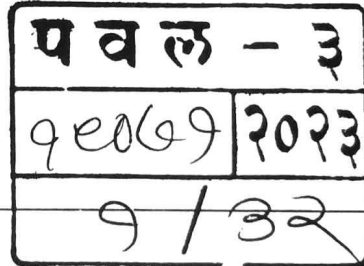 प व ल - ३
१९०७१ २०२३
१ / ३२